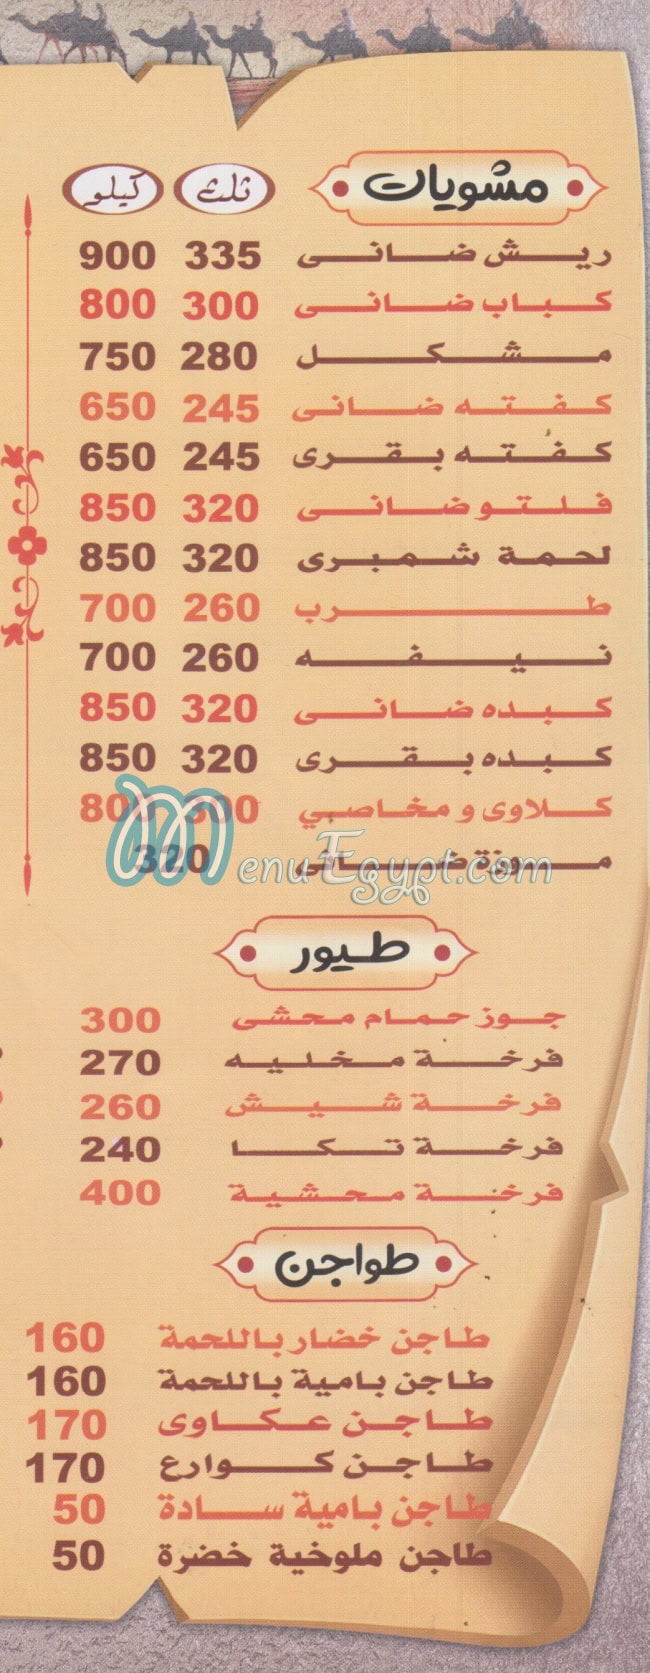 مشويات ثلث كيلو
ريش ضانى 335 900
كباب ضانى 300 800
مشكل 280 750
كفته ضانى 245 650
كفته بقرى 245 650
فلتو ضانى 320 850
لحمة شمبرى 320 850
طرب 260 700
نيفه 260 700
كبده ضانى 320 850
كبده بقرى 320 850
كلاوى و مخاصي 300 800
موزة ضانى 320
MenuEgypt.com
طيور
جوز حمام محشى 300
فرخة مخليه 270
فرخة شيش 260
فرخة تكا 240
فرخة محشية 400
طواجن
طاجن خضار باللحمة 160
طاجن بامية باللحمة 160
طاجن عكاوى 170
طاجن كوارع 170
طاجن بامية سادة 50
طاجن ملوخية خضرة 50